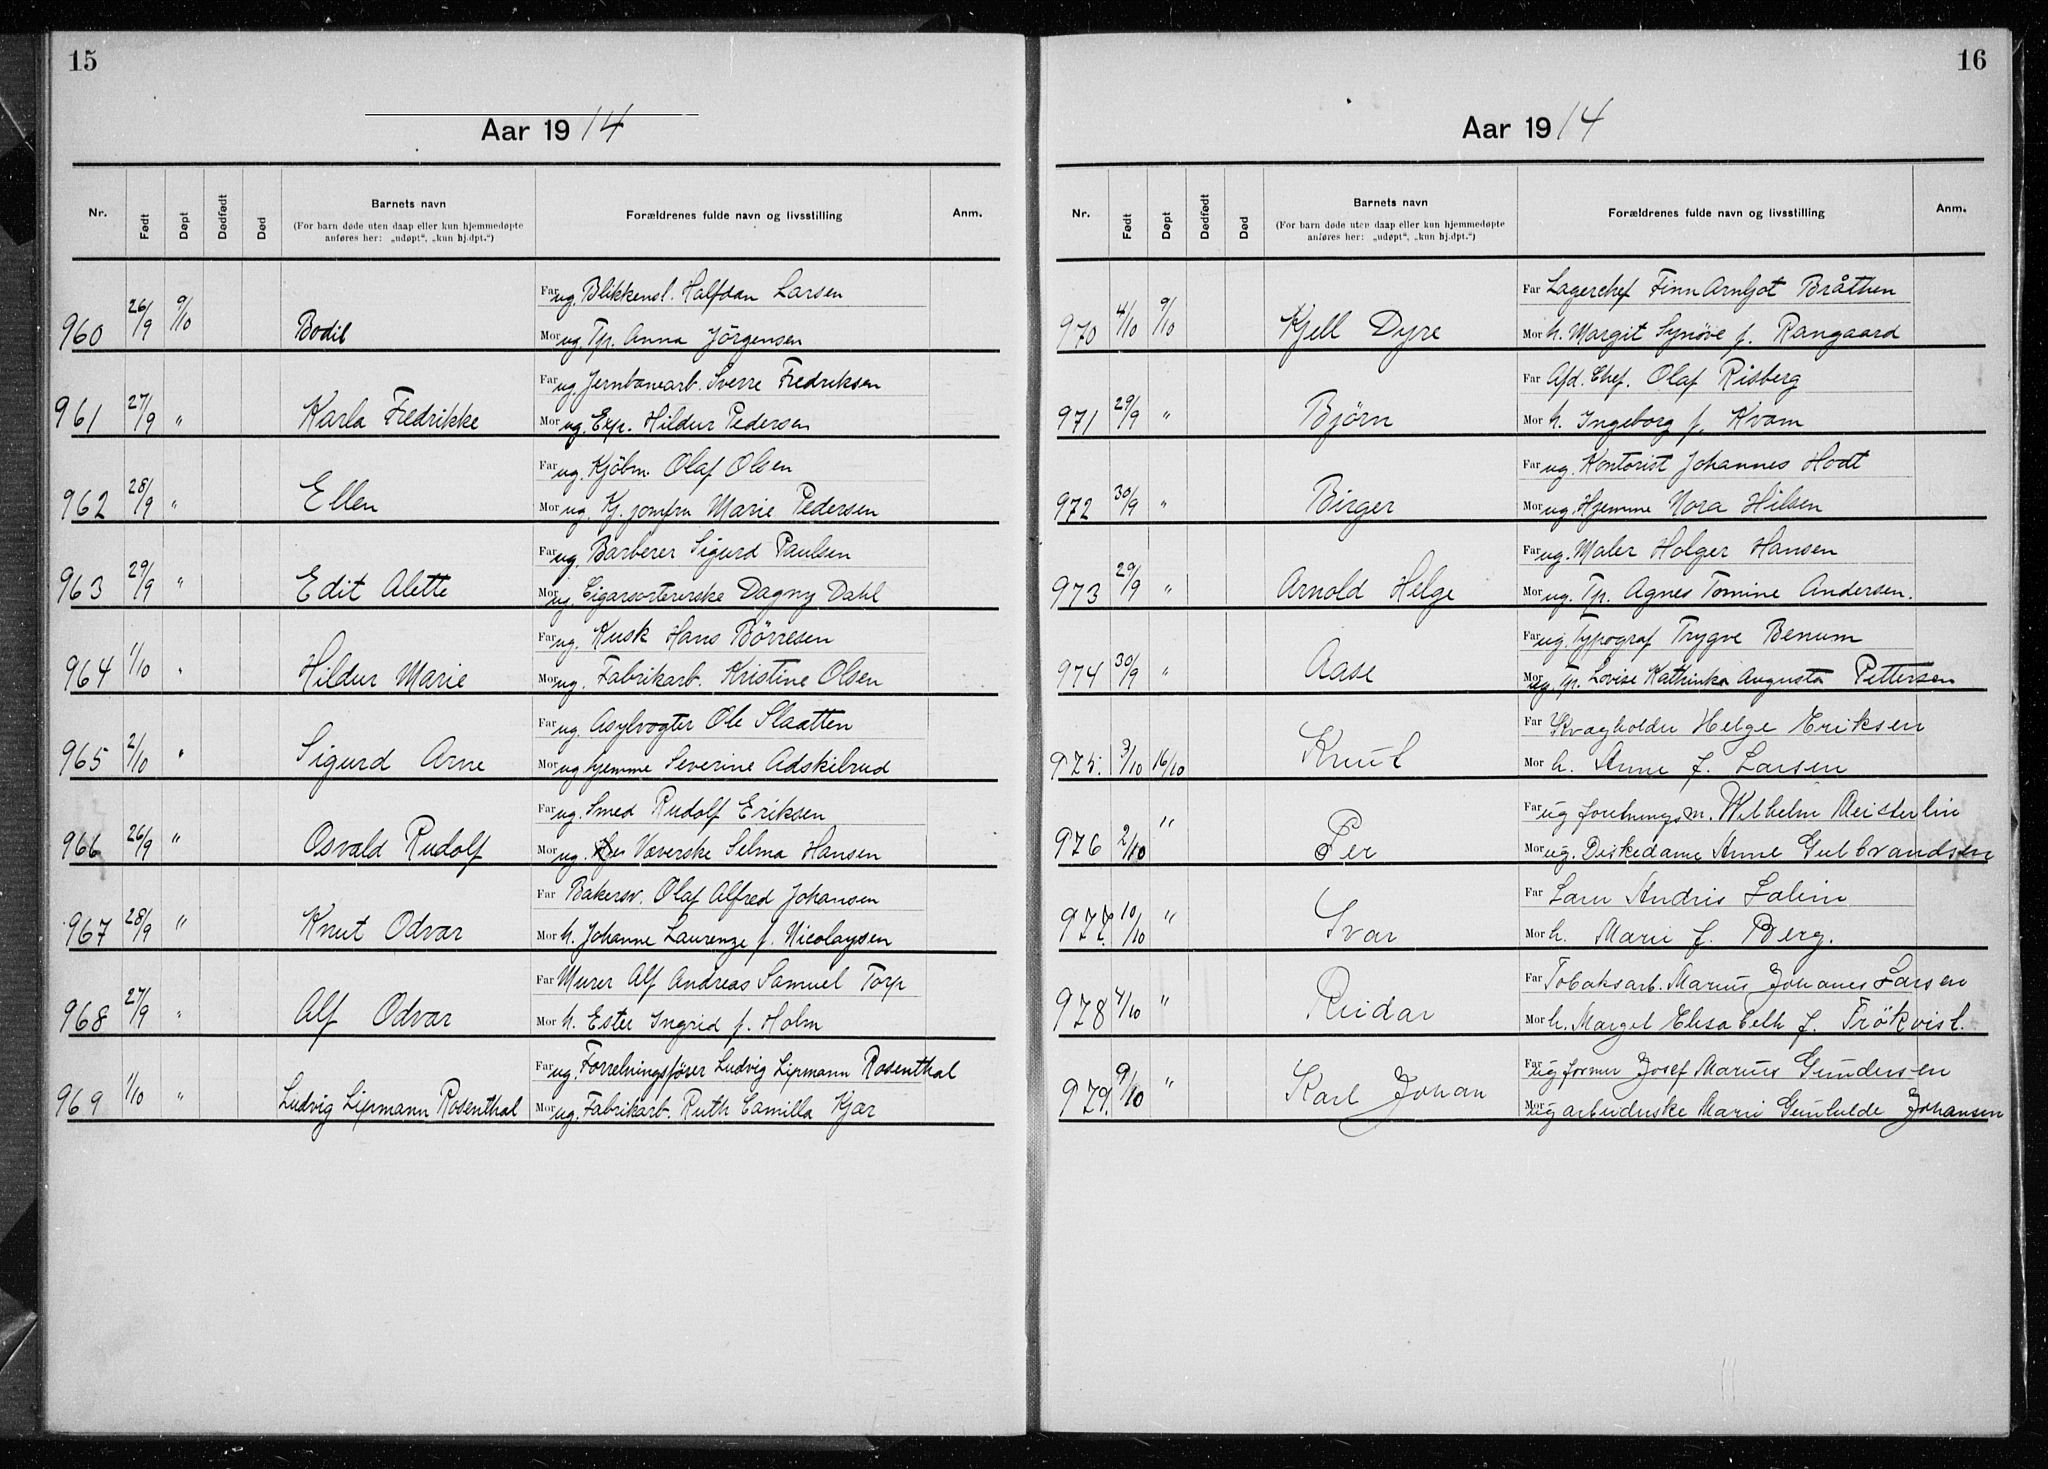 15
Aar 1914
Nr.
Født
Døpt
Dødfødt
Død
Barnets navn
(For barn døde uten daap eller kun hjemmedøpte
anføres her: „udøpt“, „kun hj.dpt.“)
Forældrenes fulde navn og livsstilling
Anm.
Far ug. Blikkensl. Halfdan Larsen
960 26/9 9/10 Bodil Mor ug. Tp. Anna Jörgensen
Far ug. Jernbanearb. Sverre Fredriksen
961 27/9 " Karla Fredrikke Mor ug. Exp. Hildur Pedersen
Far ug. Kjöbm. Olaf Olsen
962 28/9 " Ellen Mor ug. Kj. jomfru Marie Pedersen
Far ug. Barberer Sigurd Paulsen
963 29/9 " Edit Alette Mor ug. Cigarsortererske Dagny Dahl
Far ug. Kusk Hans Börresen
964 1/10 " Hildur Marie Mor ug. Fabrikarb. Kristine Olsen
Far ug. Asylvogter Ole Slaatten
965 2/10 " Sigurd Arne Mor ug hjemme Severine Adskilrud
Far ug. Smed Rudolf Eriksen
966 26/9 " Osvald Rudolf Mor ug. Væverske Selma Hansen
Far Bakersv. Olaf Alfred Johansen
967 28/9 " Knut Odvar Mor h. Johanne Laurenze f. Nicolaysen
Far Murer Alf Andreas Samuel Torp
968 27/9 " Alf Odvar Mor h. Ester Ingrid f. Holm
Far ug. Forretningsförer Ludvig Lipmann Rosenthal
969 1/10 " Ludvig Lipmann Rosenthal Mor ug. Fabrikarb. Ruth Camilla Kjær
16
Aar 1914
Nr.
Født
Døpt
Dødfødt
Død
Barnets navn
(For barn døde uten daap eller kun hjemmedøpte
anføres her: „udøpt“, „kun hj.dpt.“)
Forældrenes fulde navn og livsstilling
Anm.
Far Lagerchef Finn Arnljot Bråthen
970 4/10 9/10 Kjell Dyre Mor h. Margit Synöve f. Rangaard
Far Afd. Chef. Olaf Risberg
971 29/9 " Bjørn Mor h. Ingeborg f. Kvam
Far ug. Kontorist Johannes Hodt
972 30/9 " Birger Mor ug. Hjemme Nora Hilsen
Far ug. Maler Holger Hansen
973 29/9 " Arnold Helge Mor ug. Tp. Agnes Tomine Andersen.
Far ug. Typograf Trygve Benum
974 30/9 " Aase Mor ug. Tp. Lovise Kathinka Augusta Pettersen
Far Kvægholder Helge Eriksen
975. 3/10 16/10 Knut Mor h. Anne f. Larsen
Far ug forretningsm. Wilhelm Meisterlin
976 2/10 " Per Mor ug. Diskedame Anne Gulbrandsen
Far Andris
977. 10/10 " Ivar Mor h. Marie f. Berg.
Far Tobaksarb. Marius Johanes Larsen
978 4/10 " Reidar Mor h. Marget Elisabeth f. Frökvist.
Far ug former Josef Marius Gundersen
979. 9/10 " Karl Johan Mor ug arbeiderske Marie Gunhilde Johansen